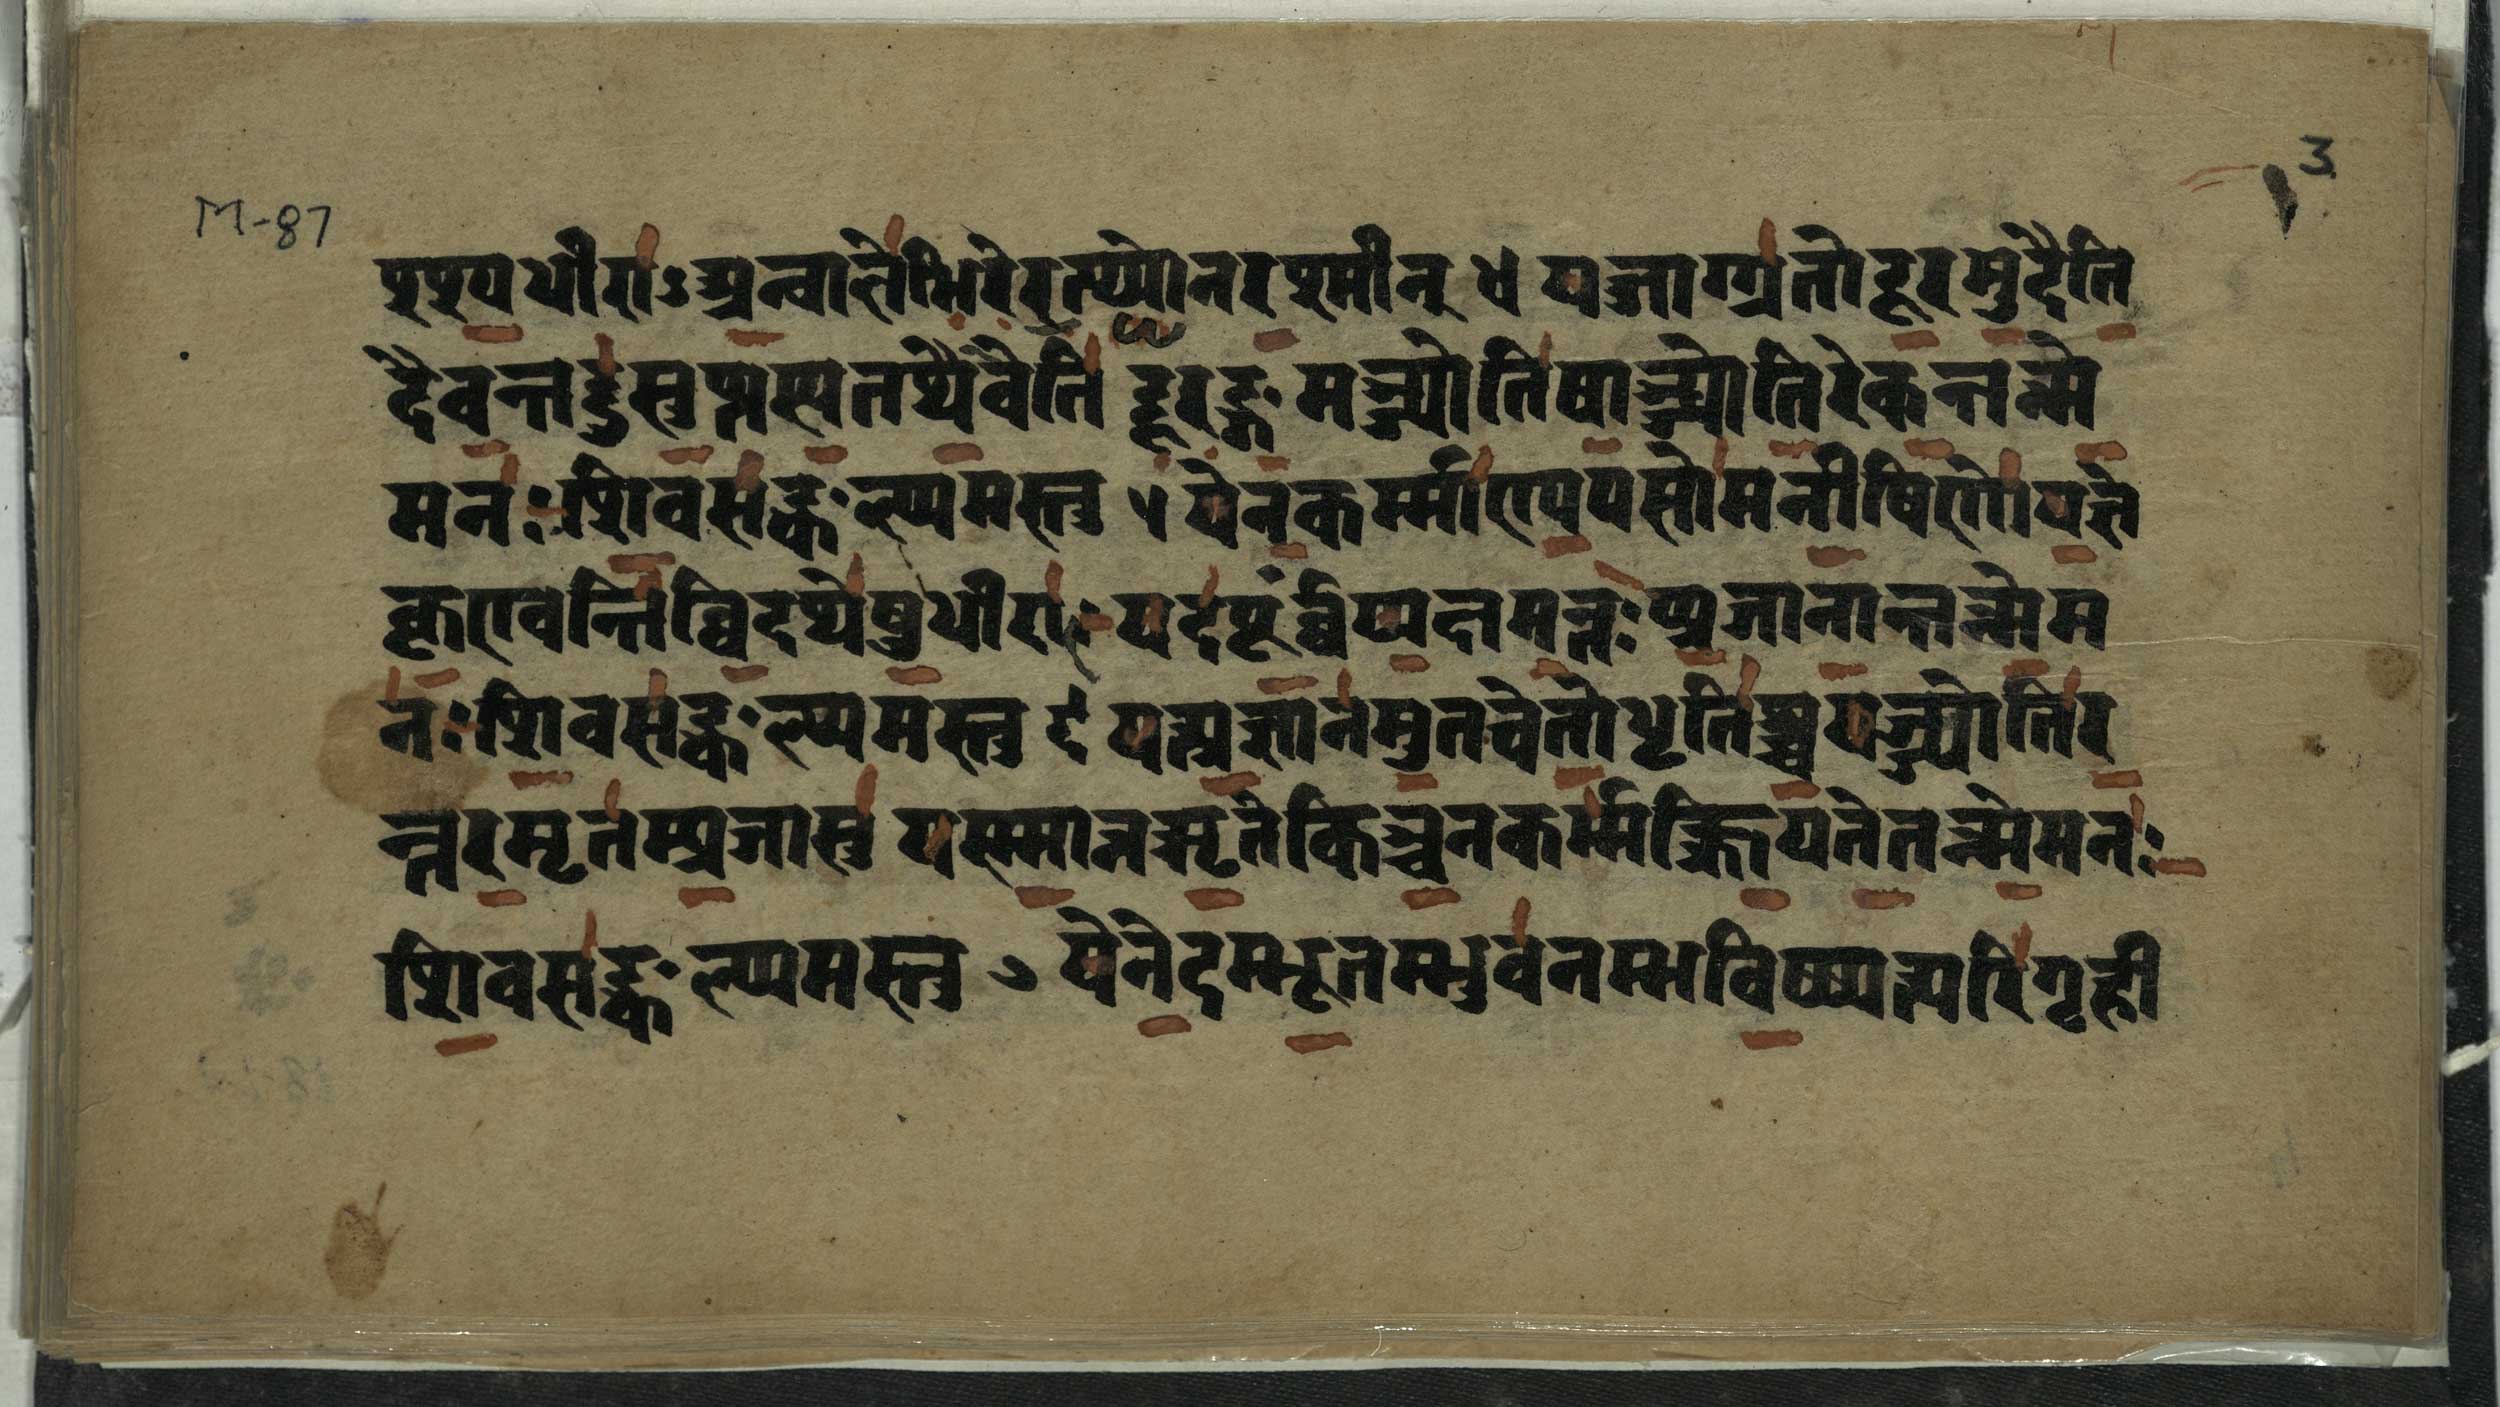 3
M-87
दृश्यधीराऽअन्वालेभिरेरत्थ्योनरश्मीन् ४ यज्जाग्ग्रतोदूरमुदैति
दैवन्तदुसुप्प्तस्यतथैवैति दूरङ्गमञ्ज्योतिषाञ्ज्योतिरेकन्तन्मे
मनः शिवसङ्कल्प्पमस्तु ५ येनकर्म्माण्यपसोमनीषिणोयज्ञे
कृण्वन्तिव्विदथेषुधीराः यदपूर्व्वंयक्षमन्तः प्प्रजानान्तन्मेम
नः शिवसङ्कल्प्पमस्तु ६ यत्प्रज्ञानमुतचेतोधृतिश्च्चयज्ज्योतिर
न्तरमृतम्प्रजासु यस्म्मान्नऋतेकिञ्चनकर्म्मक्रियतेतन्मेमनः
शिवसङ्कल्प्पमस्तु ७ येनेदम्भूतम्भुवनम्भविष्यत्परिगृही